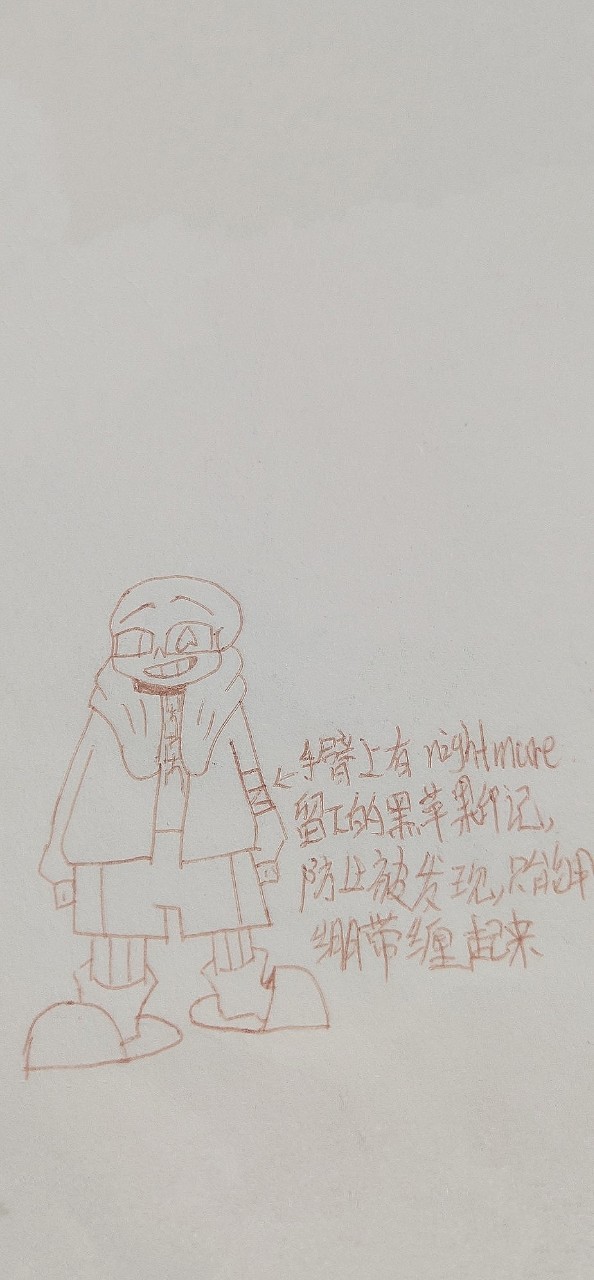 手臂上有 nightmare
留下的黑苹果印记,
防止被发现,只能用
绷带缠起来